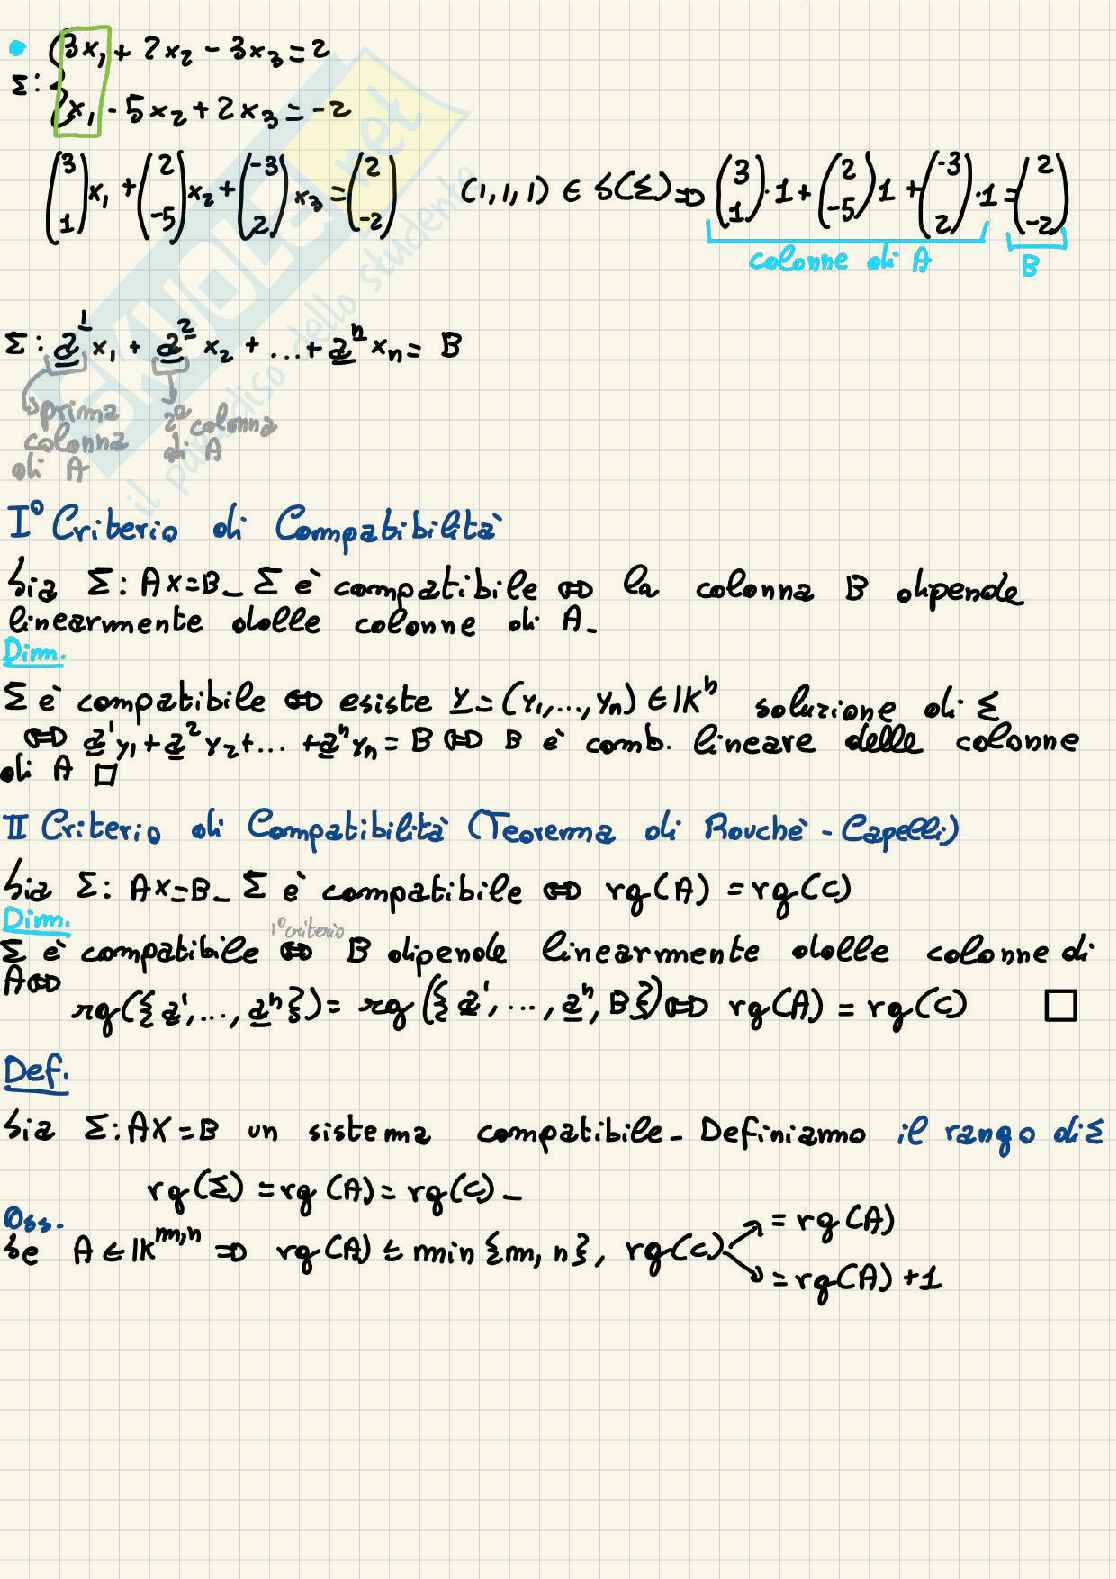 • Σ: { 3x₁ + 2x₂ - 3x₃ = 2
x₁ - 5x₂ + 2x₃ = -2
(3 1) x₁ + (2 -5) x₂ + (-3 2) x₃ = (2 -2) (1,1,1) ∈ S(Σ) ⇒ (3 1)·1 + (2 -5) 1 + (-3 2)·1 = (2 -2)
colonne di A B
Σ: a¹ x₁ + a² x₂ + ... + aⁿ xₙ = B
↳ prima colonna di A
2ª colonna di A
SKUOLA.net
il paradiso dello studente
I° Criterio di Compatibilità
Sia Σ: AX=B_ Σ è compatibile ⇔ la colonna B dipende
linearmente dalle colonne di A_
Dim.
Σ è compatibile ⇔ esiste y = (y₁,..., yₙ) ∈ IKⁿ soluzione di Σ
⇔ a¹y₁ + a²y₂ + ... + aⁿyₙ = B ⇔ B è comb. lineare delle colonne
di A □
II Criterio di Compatibilità (Teorema di Rouchè - Capelli)
Sia Σ: AX=B_ Σ è compatibile ⇔ rg(A) = rg(C)
Dim.
1° criterio
Σ è compatibile ⇔ B dipende linearmente dalle colonne di
A ⇔
rg({a¹,..., aⁿ}) = rg({a¹, ..., aⁿ, B}) ⇔ rg(A) = rg(C) □
Def.
Sia Σ: AX = B un sistema compatibile_ Definiamo il rango di Σ
rg(Σ) = rg(A) = rg(C) _
Oss.
Se A ∈ IK^m,n ⇒ rg(A) ≤ min {m, n}, rg(C) ↗ = rg(A)
↘ = rg(A) + 1